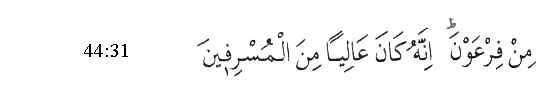 مِنْ فِرْعَوْنَ ؕ اِنَّهٗ كَانَ عَالِيًا مِنَ الْمُسْرِفِيْنَ 44:31